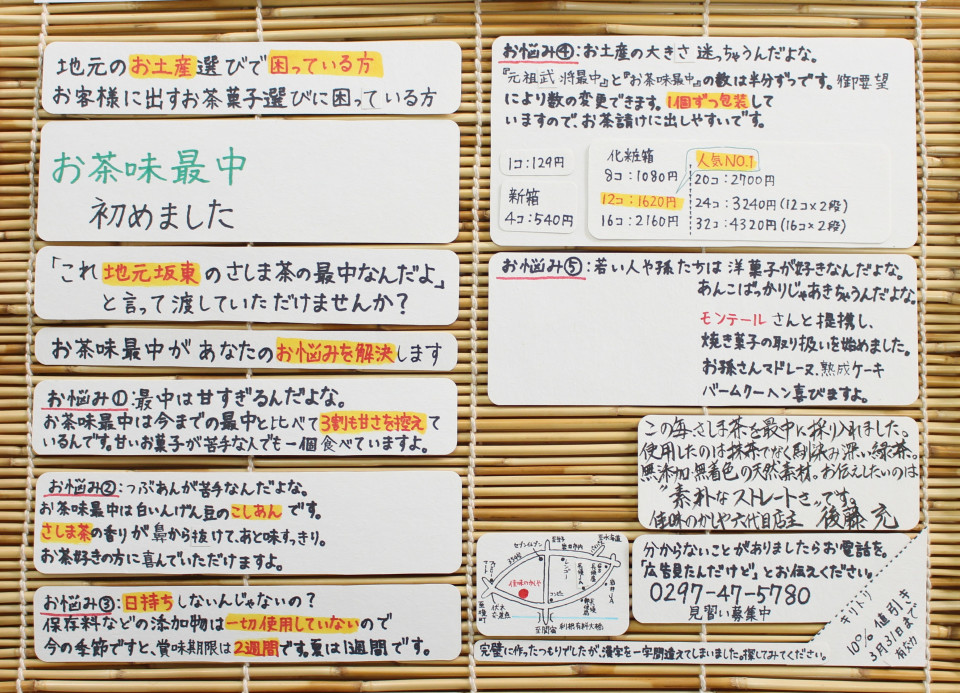 地元のお土産選びで困っている方
お客様に出すお茶菓子選びに困っている方
お茶味最中
初めました
「これ地元坂東のさしま茶の最中なんだよ」
と言って渡していただけませんか?
お茶味最中があなたのお悩みを解決します
お悩み①:最中は甘すぎるんだよな。
お茶味最中は今までの最中と比べて3割も甘さを控えて
いるんです。甘いお菓子が苦手なんでも一個食べていますよ。
お悩み②:つぶあんが苦手なんだよな。
お茶味最中は白いんげん豆のこしあんです。
さしま茶の香りが鼻から抜けて、あと味すっきり。
お茶好きの方に喜んでいただけますよ。
お悩み③:日持ちしないんじゃないの?
保存料などの添加物は一切使用していないので
今の季節ですと、賞味期限は2週間です。夏は1週間です。
お悩み④:お土産の大きさ迷っちゃうんだよな。
『元祖武将最中』と『お茶味最中』の数は半分ずつです。御要望
により数の変更できます。1個ずつ包装して
いますので、お茶請けに出しやすいです。
1コ:129円
新箱
4コ:540円
化粧箱
8コ:1080円
12コ:1620円
16コ:2160円
人気NO.1
20コ:2700円
24コ:3240円(12コ×2段)
32コ:4320円(16コ×2段)
お悩み⑤:若い人や孫たちは洋菓子が好きなんだよな。
あんこばっかりじゃあきちゃうんだよな。
モンテールさんと提携し、
焼き菓子の取り扱いを始めました。
お孫さんマドレーヌ、熟成ケーキ
バームクーヘン喜びますよ。
この毎、さしま茶を最中に採り入れました。
使用したのは抹茶でなく馴染み深い緑茶。
無添加無着色の天然素材。お伝えしたいのは
"素朴なストレートさ"です。
佳味のかしや六代目店主 後藤充
セブンイレブン
354号
佳味のかしや
コンビニ
至関宿
利根有料大橋
分からないことがありましたらお電話を。
「広告見たんだけど」とお伝えください。
0297-47-5780
見習い募集中
キリトリ
10%値引き
3月31日まで
有効
完璧に作ったつもりでしたが、漢字を一字間違えてしまいました。探してみてください。